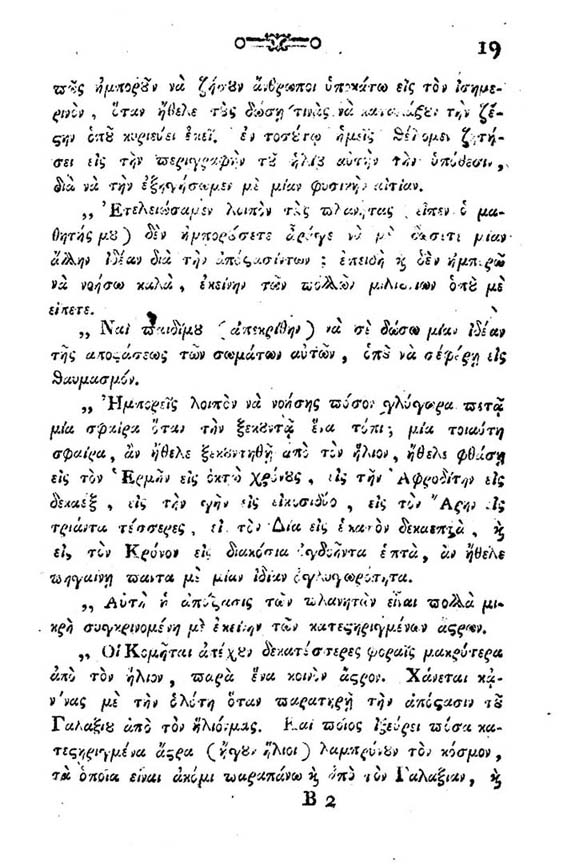 19
πῶς ἠμποροῦν νὰ ζήσουν ἄνθρωποι ὑποκάτω εἰς τὸν ἰσημε-
ρινὸν, ὅταν ἤθελε τοὺς δώσῃ τινὰς νὰ καταλάβουν τὴν ζέ-
στην ὁποῦ κυριεύει ἐκεῖ. ἐν τοσούτῳ ἡμεῖς θέλομεν ζητή-
σει εἰς τὴν περιγραφὴν τοῦ ἡλίου αὐτὴν τὴν ὑπόθεσιν,
διὰ νὰ τὴν ἐξηγήσωμεν μὲ μίαν φυσικὴν αἰτίαν.
„ Ἐτελειώσαμεν λοιπὸν τοὺς πλανήτας (εἶπεν ὁ μα-
θητής μου) δὲν ἠμπορούσετε ἆράγε νὰ μὲ δώσετε μίαν
ἄλλην ἰδέαν διὰ τὴν ἀπόστασίν των; ἐπειδὴ καὶ δὲν ἠμπορῶ
νὰ νοήσω καλὰ, ἐκείνην τῶν πολλῶν μιλιονίων ὁποῦ μὲ
εἴπετε.
„ Ναὶ παιδίμου (ἀπεκρίθην) νὰ σὲ δώσω μίαν ἰδέαν
τῆς αποστάσεως τῶν σωμάτων αὐτῶν, ὁποῦ νὰ σέφέρῃ εἰς
θαυμασμόν.
„ Ἠμπορεῖς λοιπὸν νὰ νοήσῃς πόσον γλύγωρα πετᾷ
μία σφαῖρα ὅταν τὴν ξεκουντᾷ ἕνα τόπι; μία τοιαύτη
σφαίρα, ἂν ἤθελε ξεκουντηθῇ ἀπὸ τὸν ἥλιον, ἤθελε φθάσῃ
εἰς τὸν Ἑρμῆν εἰς ὀκτὼ χρόνους, εἰς τὴν Ἀφροδίτην εἰς
δεκαὲξ, εἰς τὴν γῆν εἰς εἰκοσιδύο, εἰς τὸν Ἄρην εἰς
τριάντα τέσσερες, εἰς τὸν Δία εἰς ἑκατὸν δεκαεπτὰ, καὶ
εἰς τὸν Κρόνον εἰς διακόσια ὀγδοῆντα ἑπτὰ, ἂν ἤθελε
πηγαίνῃ παντα μὲ μίαν ἰδίαν ὀγλυγωρότητα.
„ Αὐτὴ ἡ ἀπόστασις τῶν πλανητῶν εἶναι πολλὰ μι-
κρὴ συγκρινομένη μὲ ἐκείνην τῶν κατεστηριγμένων ἄστρων.
„ Οἱ Κομῆται ἀπέχουν δεκατέστερες φοραῖς μακρύτερα
ἀπὸ τὸν ἥλιον, παρὰ ἕνα κοινὸν ἄστρον. Χάνεται κἀ-
νένας μὲ τὴν ὁλότη ὅταν παρατηρῇ τὴν ἀπόστασιν τοῦ
Γαλαξίου ἀπὸ τὸν ἥλιόνμας. Καὶ ποῖος ἰξεύρει πόσα κα-
τεστηριγμένα ἄστρα (ἤγουν ἥλιοι) λαμπρύνουν τὸν κόσμον,
τὰ ὁποῖα εἶναι ἀκόμι παραπάνω καὶ ἀπὸ τὸν Γαλαξίαν, καὶ
B 2